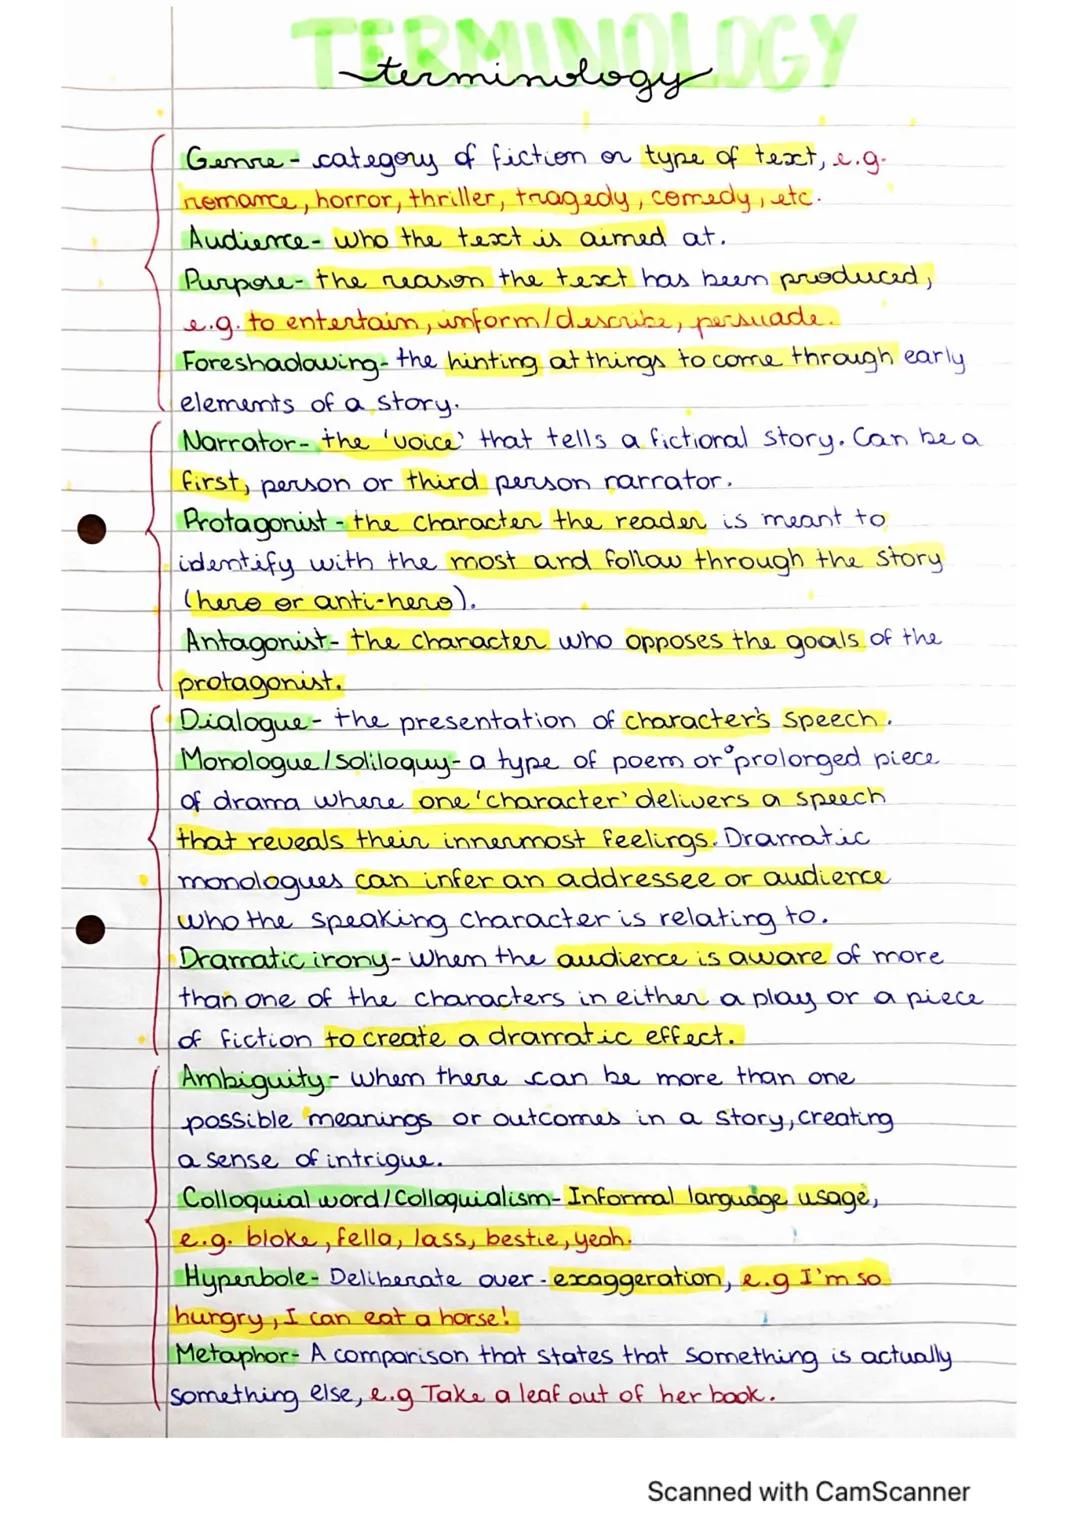 TERMINOLOGY
terminology
Genre - category of fiction or type of text, e.g.
romance, horror, thriller, tragedy, comedy, etc.
Audience- who the text is aimed at.
Purpose- the reason the text has been produced,
e.g. to entertain, inform/describe, persuade.
Foreshadowing- the hinting at things to come through early
elements of a story.
Narrator- the 'voice' that tells a fictional story. Can be a
first, person or third person narrator.
Protagonist - the character the reader is meant to
identify with the most and follow through the story
(hero or anti-hero).
Antagonist- the character who opposes the goals of the
protagonist.
Dialogue- the presentation of character's speech.
Monologue/soliloquy- a type of poem or a prolonged piece
of drama where one 'character' delivers a speech
that reveals their innermost feelings. Dramatic
monologues can infer an addressee or audience
who the speaking character is relating to.
Dramatic irony- when the audience is aware of more
than one of the characters in either a play or a piece
of fiction to create a dramatic effect.
Ambiguity- when there can be more than one
possible meanings or outcomes in a story, creating
a sense of intrigue.
Colloquial word/Colloquialism- Informal language usage,
e.g. bloke, fella, lass, bestie, yeah.
Hyperbole- Deliberate over-exaggeration, e.g I'm so
hungry, I can eat a horse!
Metaphor- A comparison that states that something is actually
something else, e.g Take a leaf out of her book.
Scanned with CamScanner